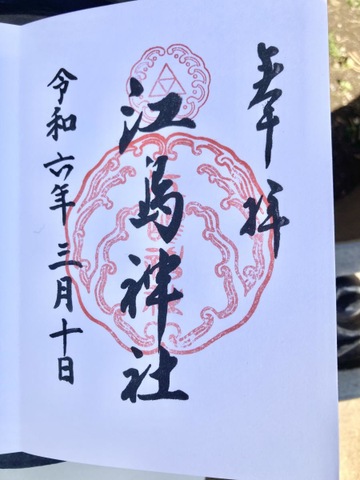 奉拝
江島神社
令和六年三月十日